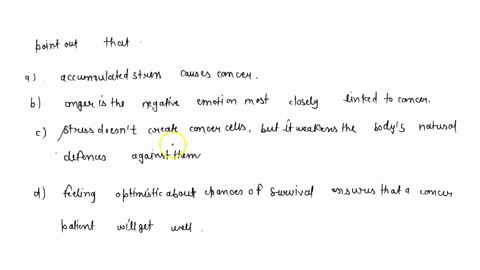 point out that
a) accumulated stress causes cancer.
b) anger is the negative emotion most closely linked to cancer.
c) stress doesn't create cancer cells, but it weakens the body's natural
defences against them
d) feeling optimistic about chances of survival ensures that a cancer
patient will get well.